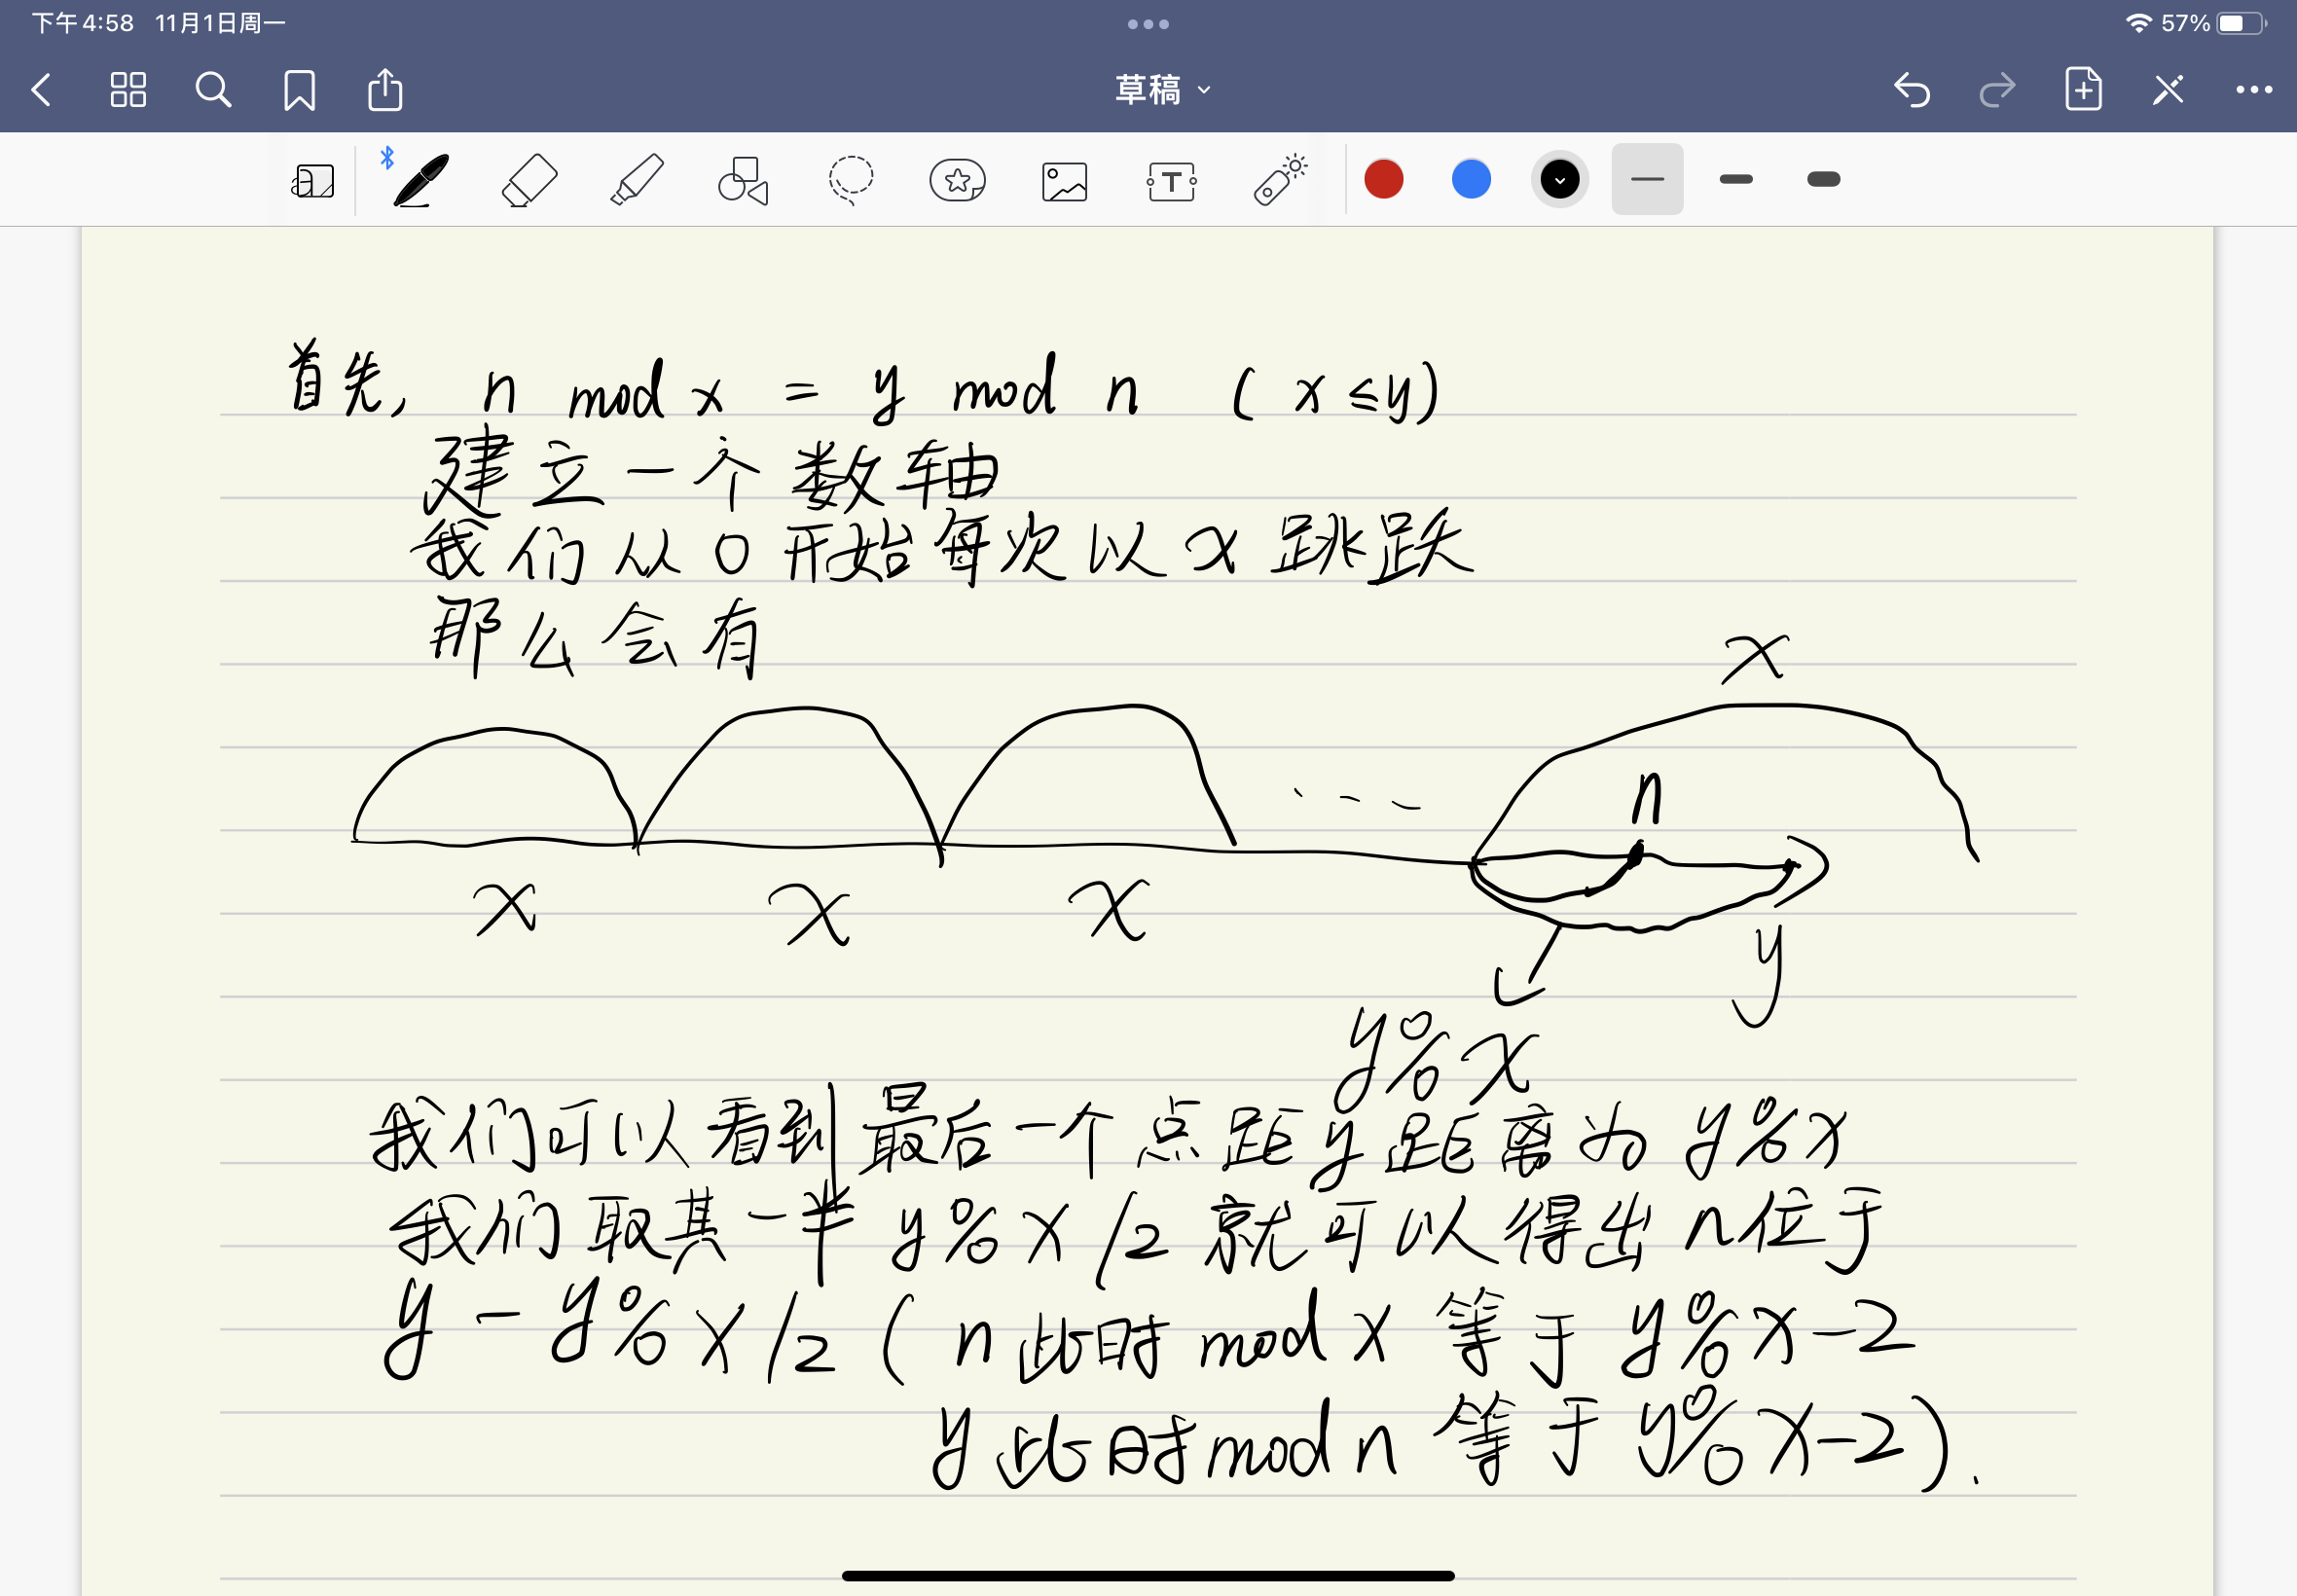 下午4:58 11月1日周一
57%
草稿
首先, n mod x = y mod n (x≤y)
建立一个数轴
我们从0开始每次以x跳跃
那么会有
x
n
x x x
y
y%x
我们可以看到最后一个点距y距离为y%x
我们取其一半y%x/2就可以得出n位于
y-y%x/2 (n此时mod x等于y%x-2
y此时mod n等于y%x-2).